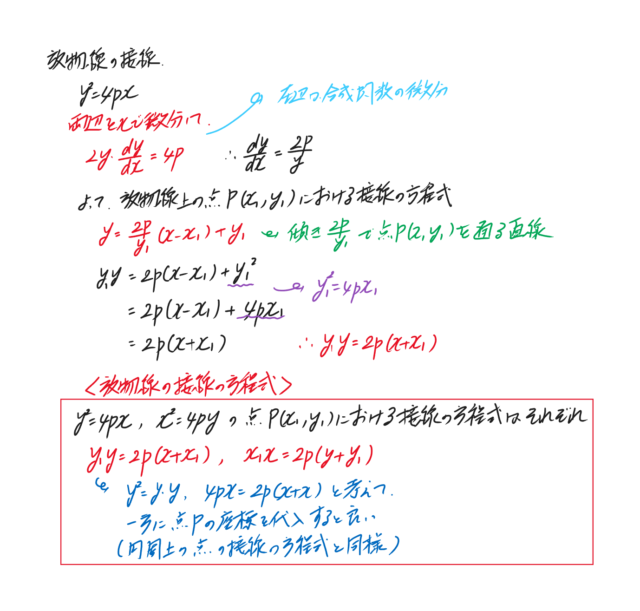 放物線の接線
y²=4px
両辺をxで微分して 左辺は合成関数の微分
2y・dy/dx=4p ∴ dy/dx=2p/y
よって 放物線上の点P(x₁,y₁)における接線の方程式
y=2p/y₁(x-x₁)+y₁ 傾き2p/y₁で点P(x₁,y₁)を通る直線
y₁y=2p(x-x₁)+y₁² y₁²=4px₁
=2p(x-x₁)+4px₁
=2p(x+x₁) ∴ y₁y=2p(x+x₁)
<放物線の接線の方程式>
y²=4px, x²=4pyの点P(x₁,y₁)における接線の方程式はそれぞれ
y₁y=2p(x+x₁), x₁x=2p(y+y₁)
y²=y・y, 4px=2p(x+x)と考えて
一方に点Pの座標を代入すると良い
(円周上の点の接線の方程式と同様)